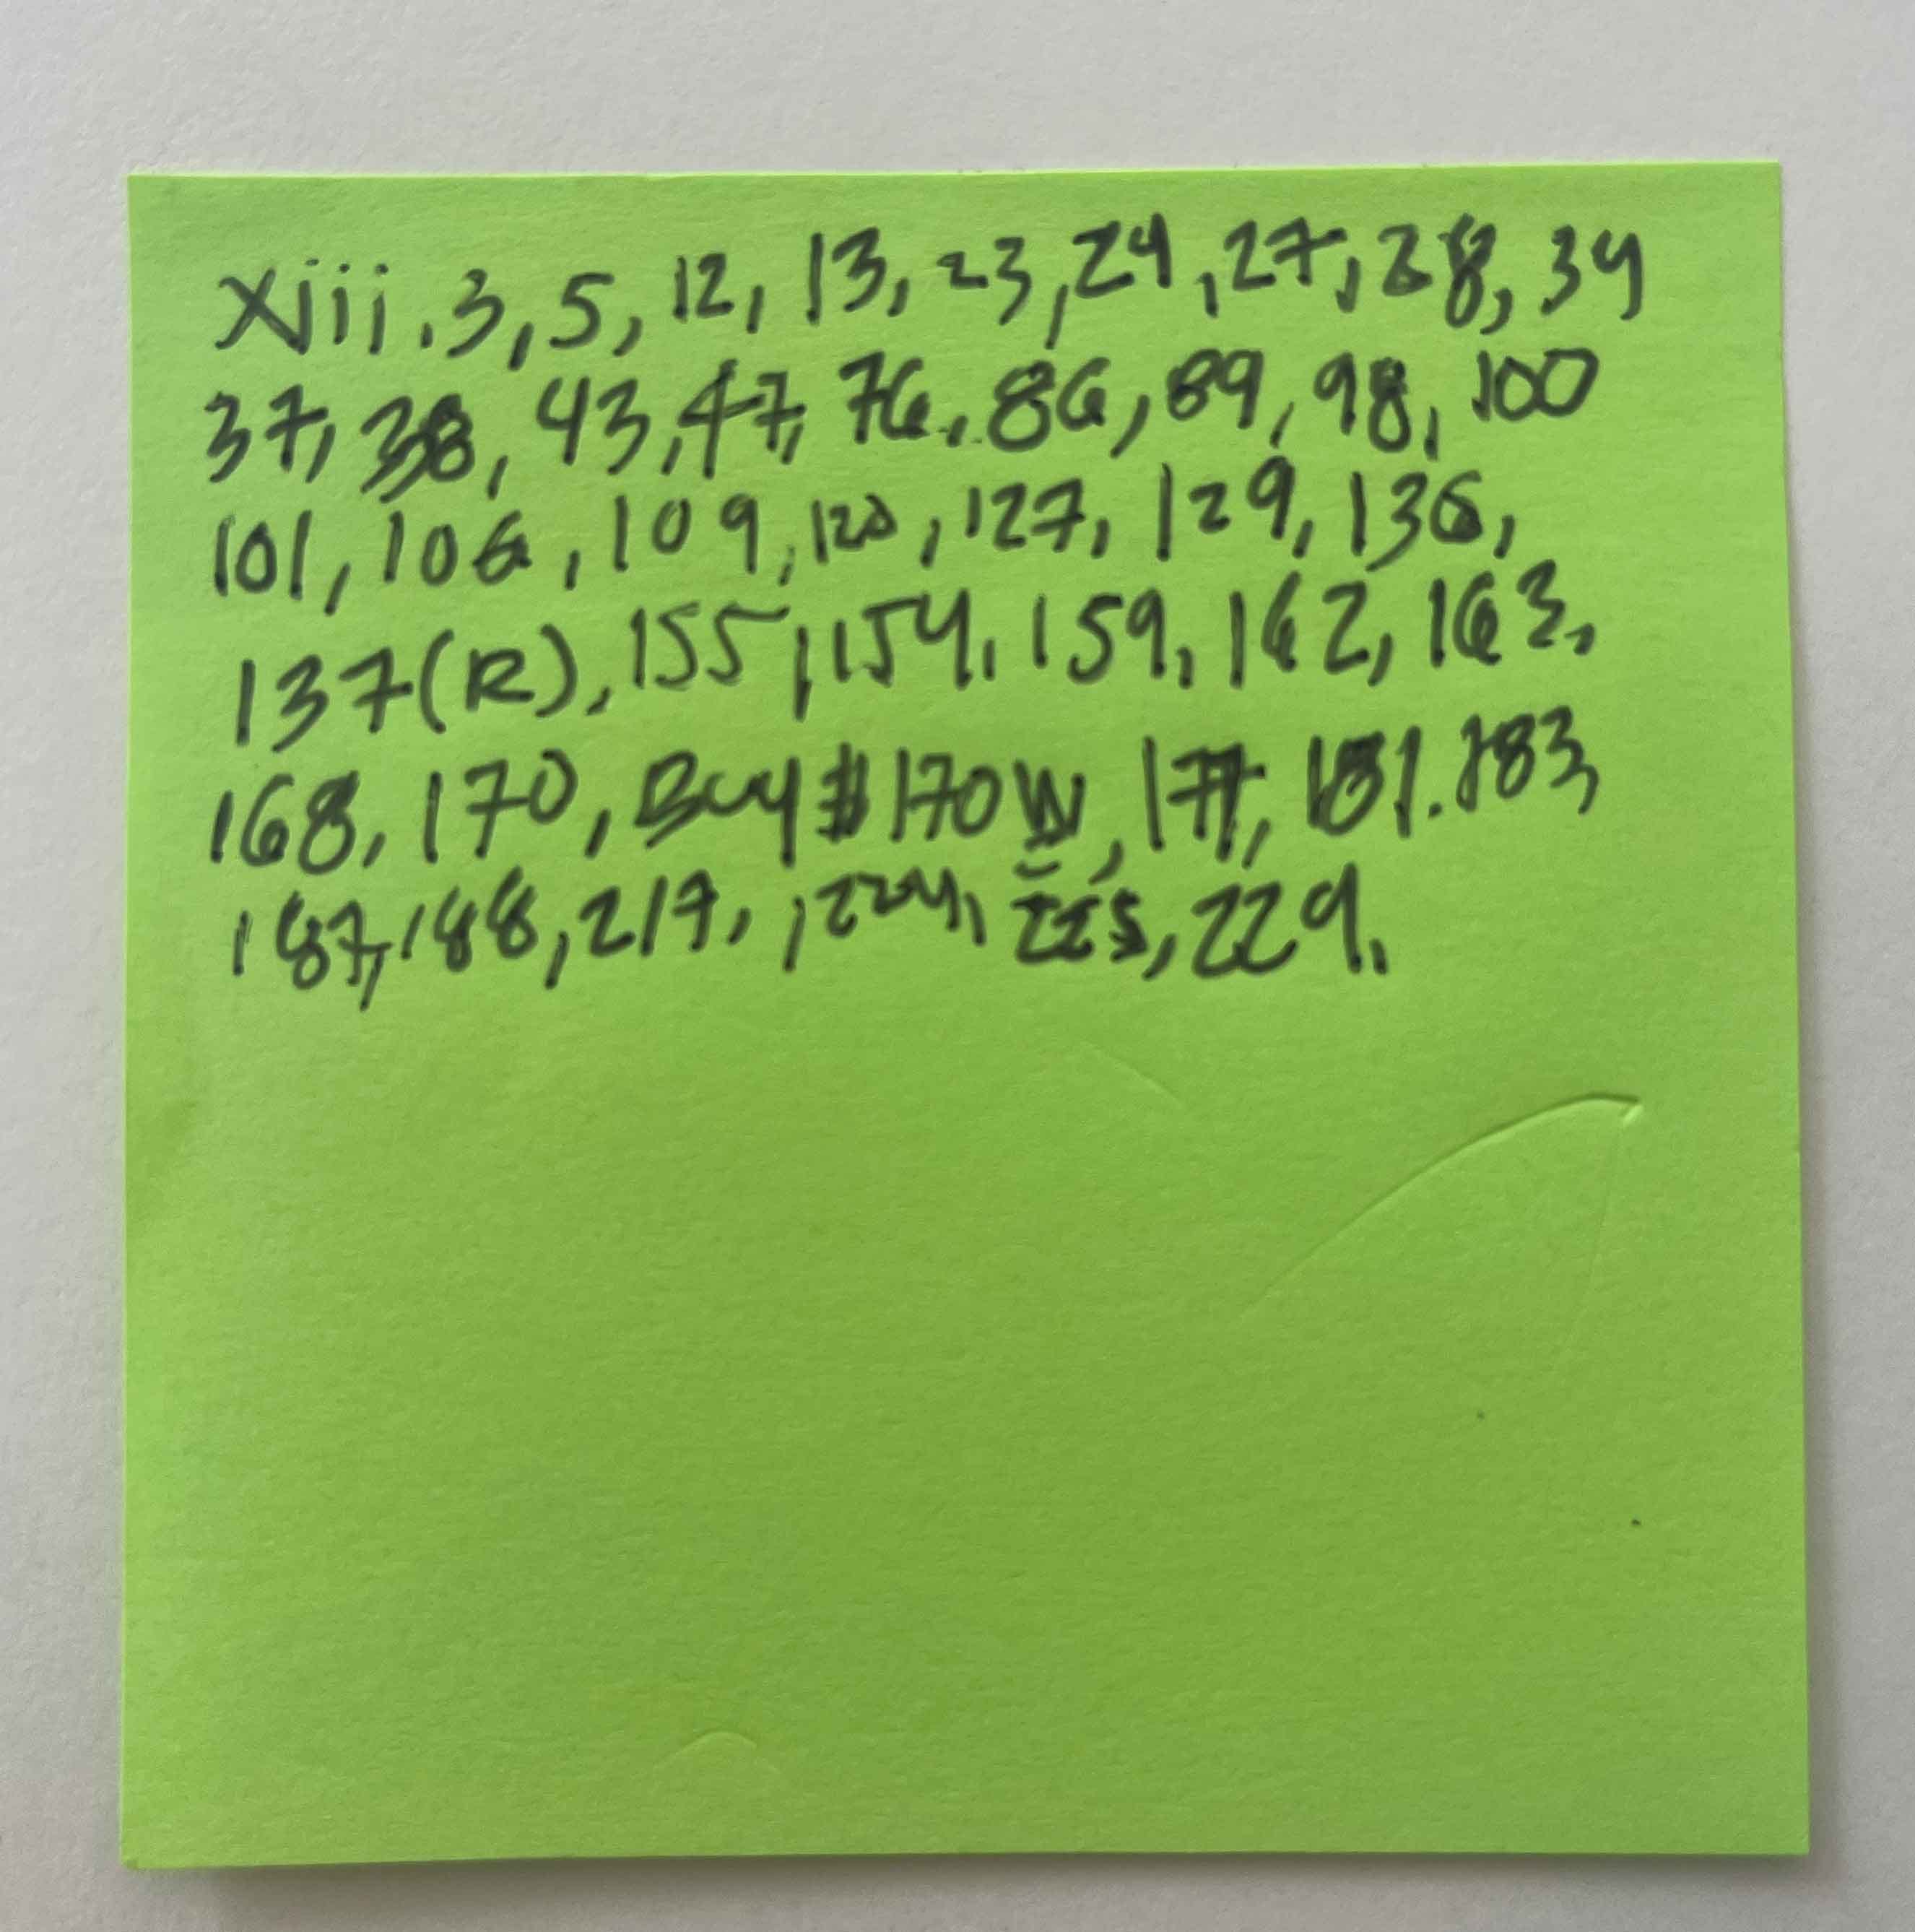 xiii, 3, 5, 12, 13, 23, 24, 27, 28, 34
37, 38, 43, 47, 76, 86, 89, 98, 100
101, 106, 109, 120, 127, 129, 136,
137(R), 155, 154, 159, 162, 163,
168, 170, Buy $170W, 177, 181. 183,
187, 188, 217, , 224, 225, 229,